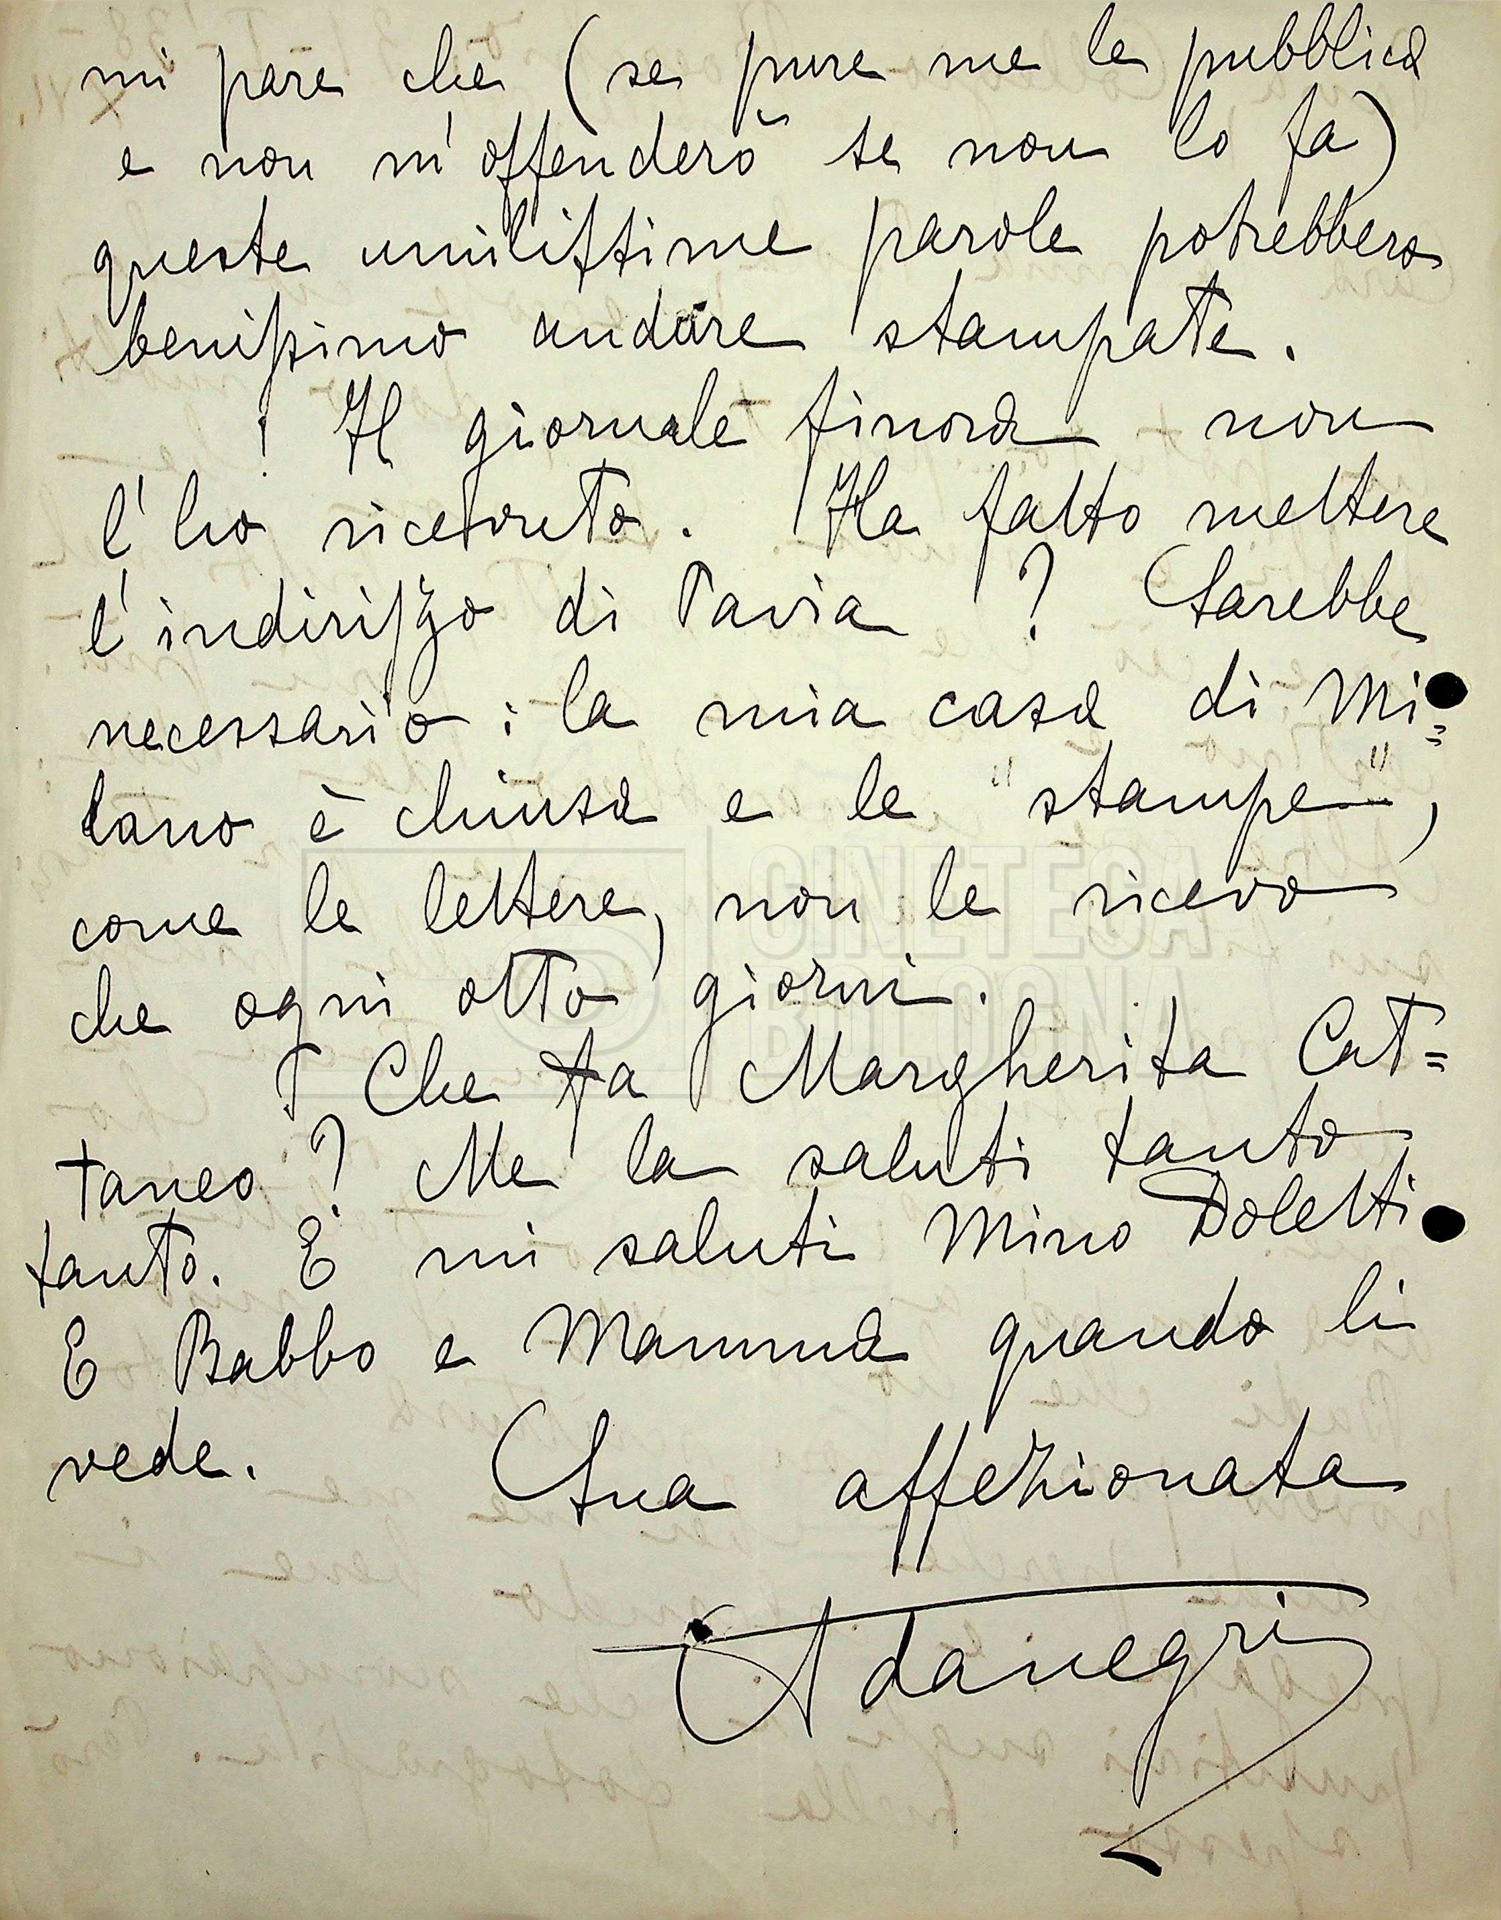 mi pare che (se pure me le pubblica
e non m'offenderò se non lo fa)
queste umilissime parole potrebbero
benissimo andare stampate.
Il giornale finora non
l'ho ricevuto. Ha fatto mettere
l'indirizzo di Pavia? Sarebbe
necessario: la mia casa di Mi=
lano è chiusa e le "stampe",
come le lettere, non le ricevo
che ogni otto giorni.
Che fa Margherita Cat=
taneo? Me la saluti tanto
tanto. E mi saluti Mino Doletti
E Babbo e Mamma quando li
vede. Sua affezionata
Adanegri
CINETECA
BOLOGNA